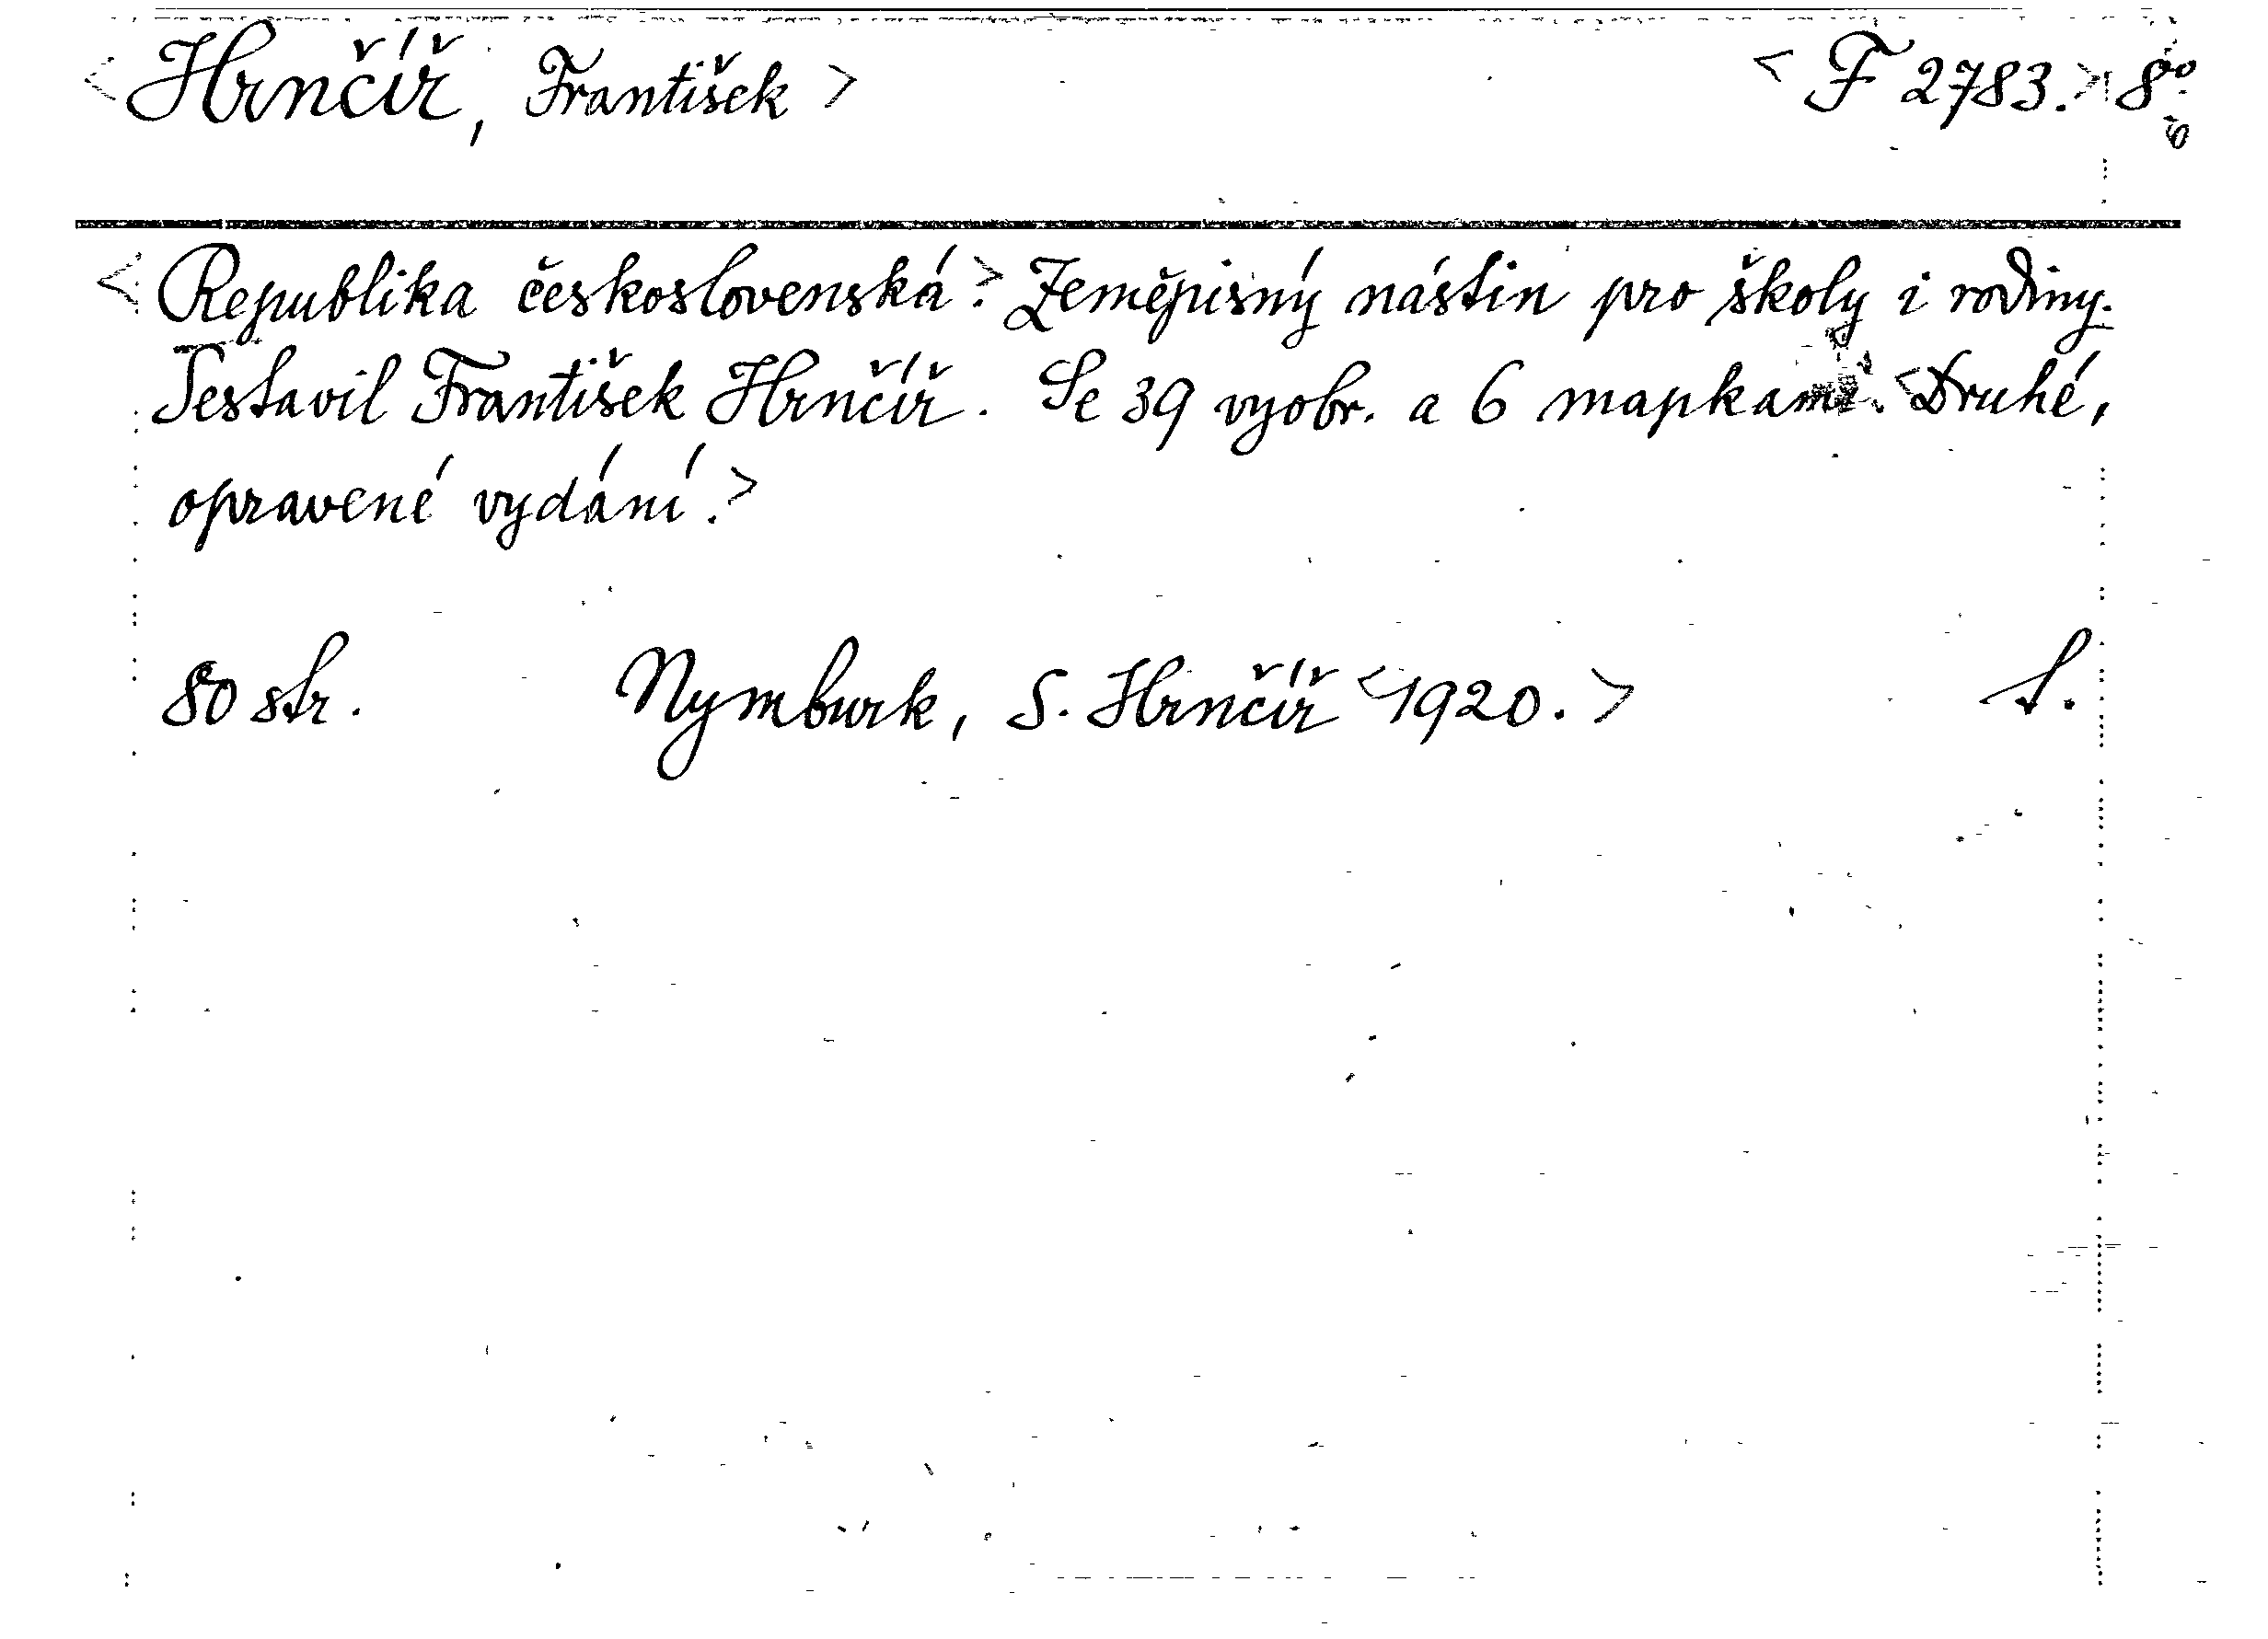 <Hrnčíř, František> <F 2783.> 8º
<Republika československá.> Zeměpisný nástin pro školy i rodiny.
Sestavil František Hrnčíř. Se 39 vyobr. a 6 mapkami. <Druhé,
opravené vydání.>
80 str. Nymburk, S. Hrnčíř <1920.> S.